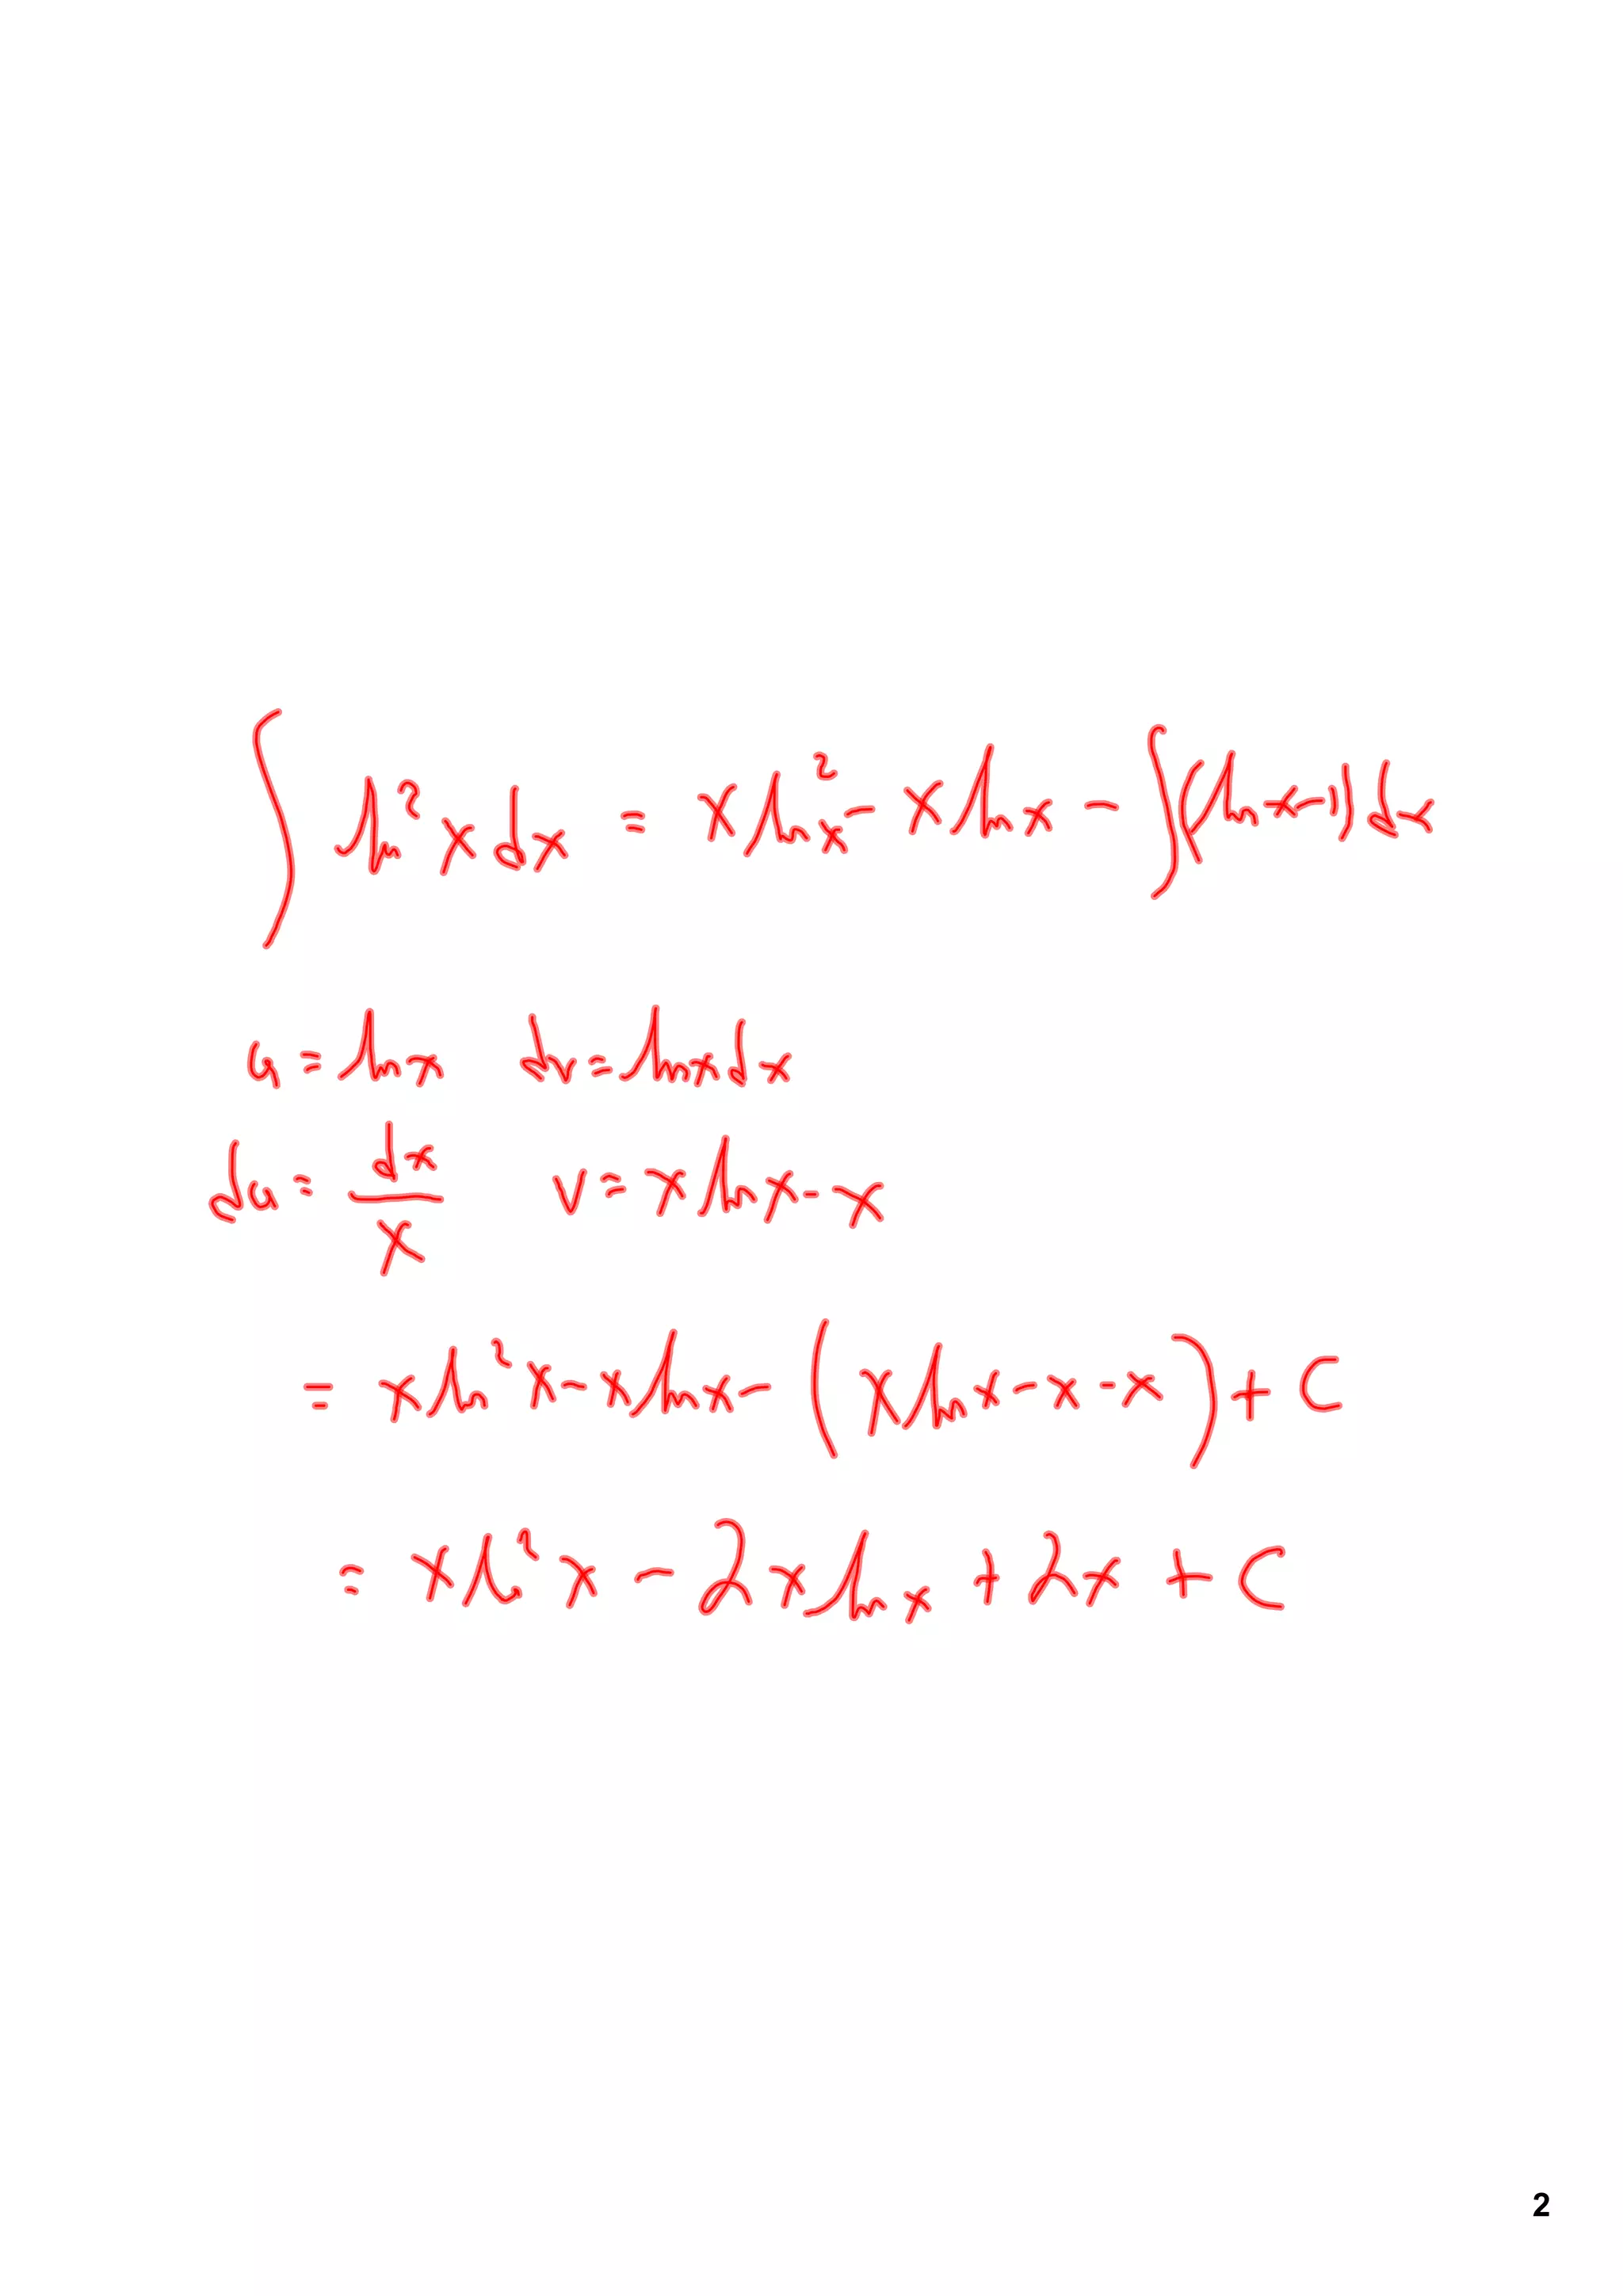 ∫ ln²x dx = x ln²x - x ln x - ∫(ln x - 1) dx
u = ln x dv = ln x dx
du = dx/x v = x ln x - x
= x ln²x - x ln x - (x ln x - x - x) + C
= x ln²x - 2x ln x + 2x + C
2